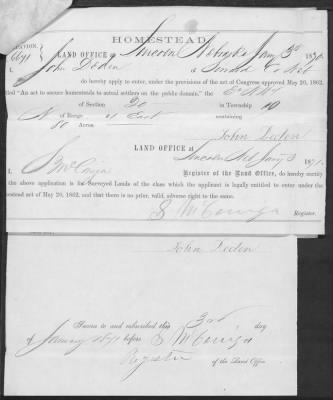 HOMESTEAD.
LAND OFFICE at Lincoln Nebraska Jany 3d 1871
I, John Deden of
do hereby apply to enter, under the provisions of the act of Congress approved May 20, 1862,
entitled "An act to secure homesteads to actual settlers on the public domain," the
of Section 20 in Township 10
N of Range East containing
80 Acres.
John Deden
LAND OFFICE at
Lincoln Neb Jany 3 1871
I, Register of the Land Office, do hereby certify
that the above application is for Surveyed Lands of the class which the applicant is legally entitled to enter under the
Homestead act of May 20, 1862, and that there is no prior, valid, adverse right to the same.
Register.
John Deden
Sworn to and subscribed this 3rd day
of January 1871 before
Register of the Land Office